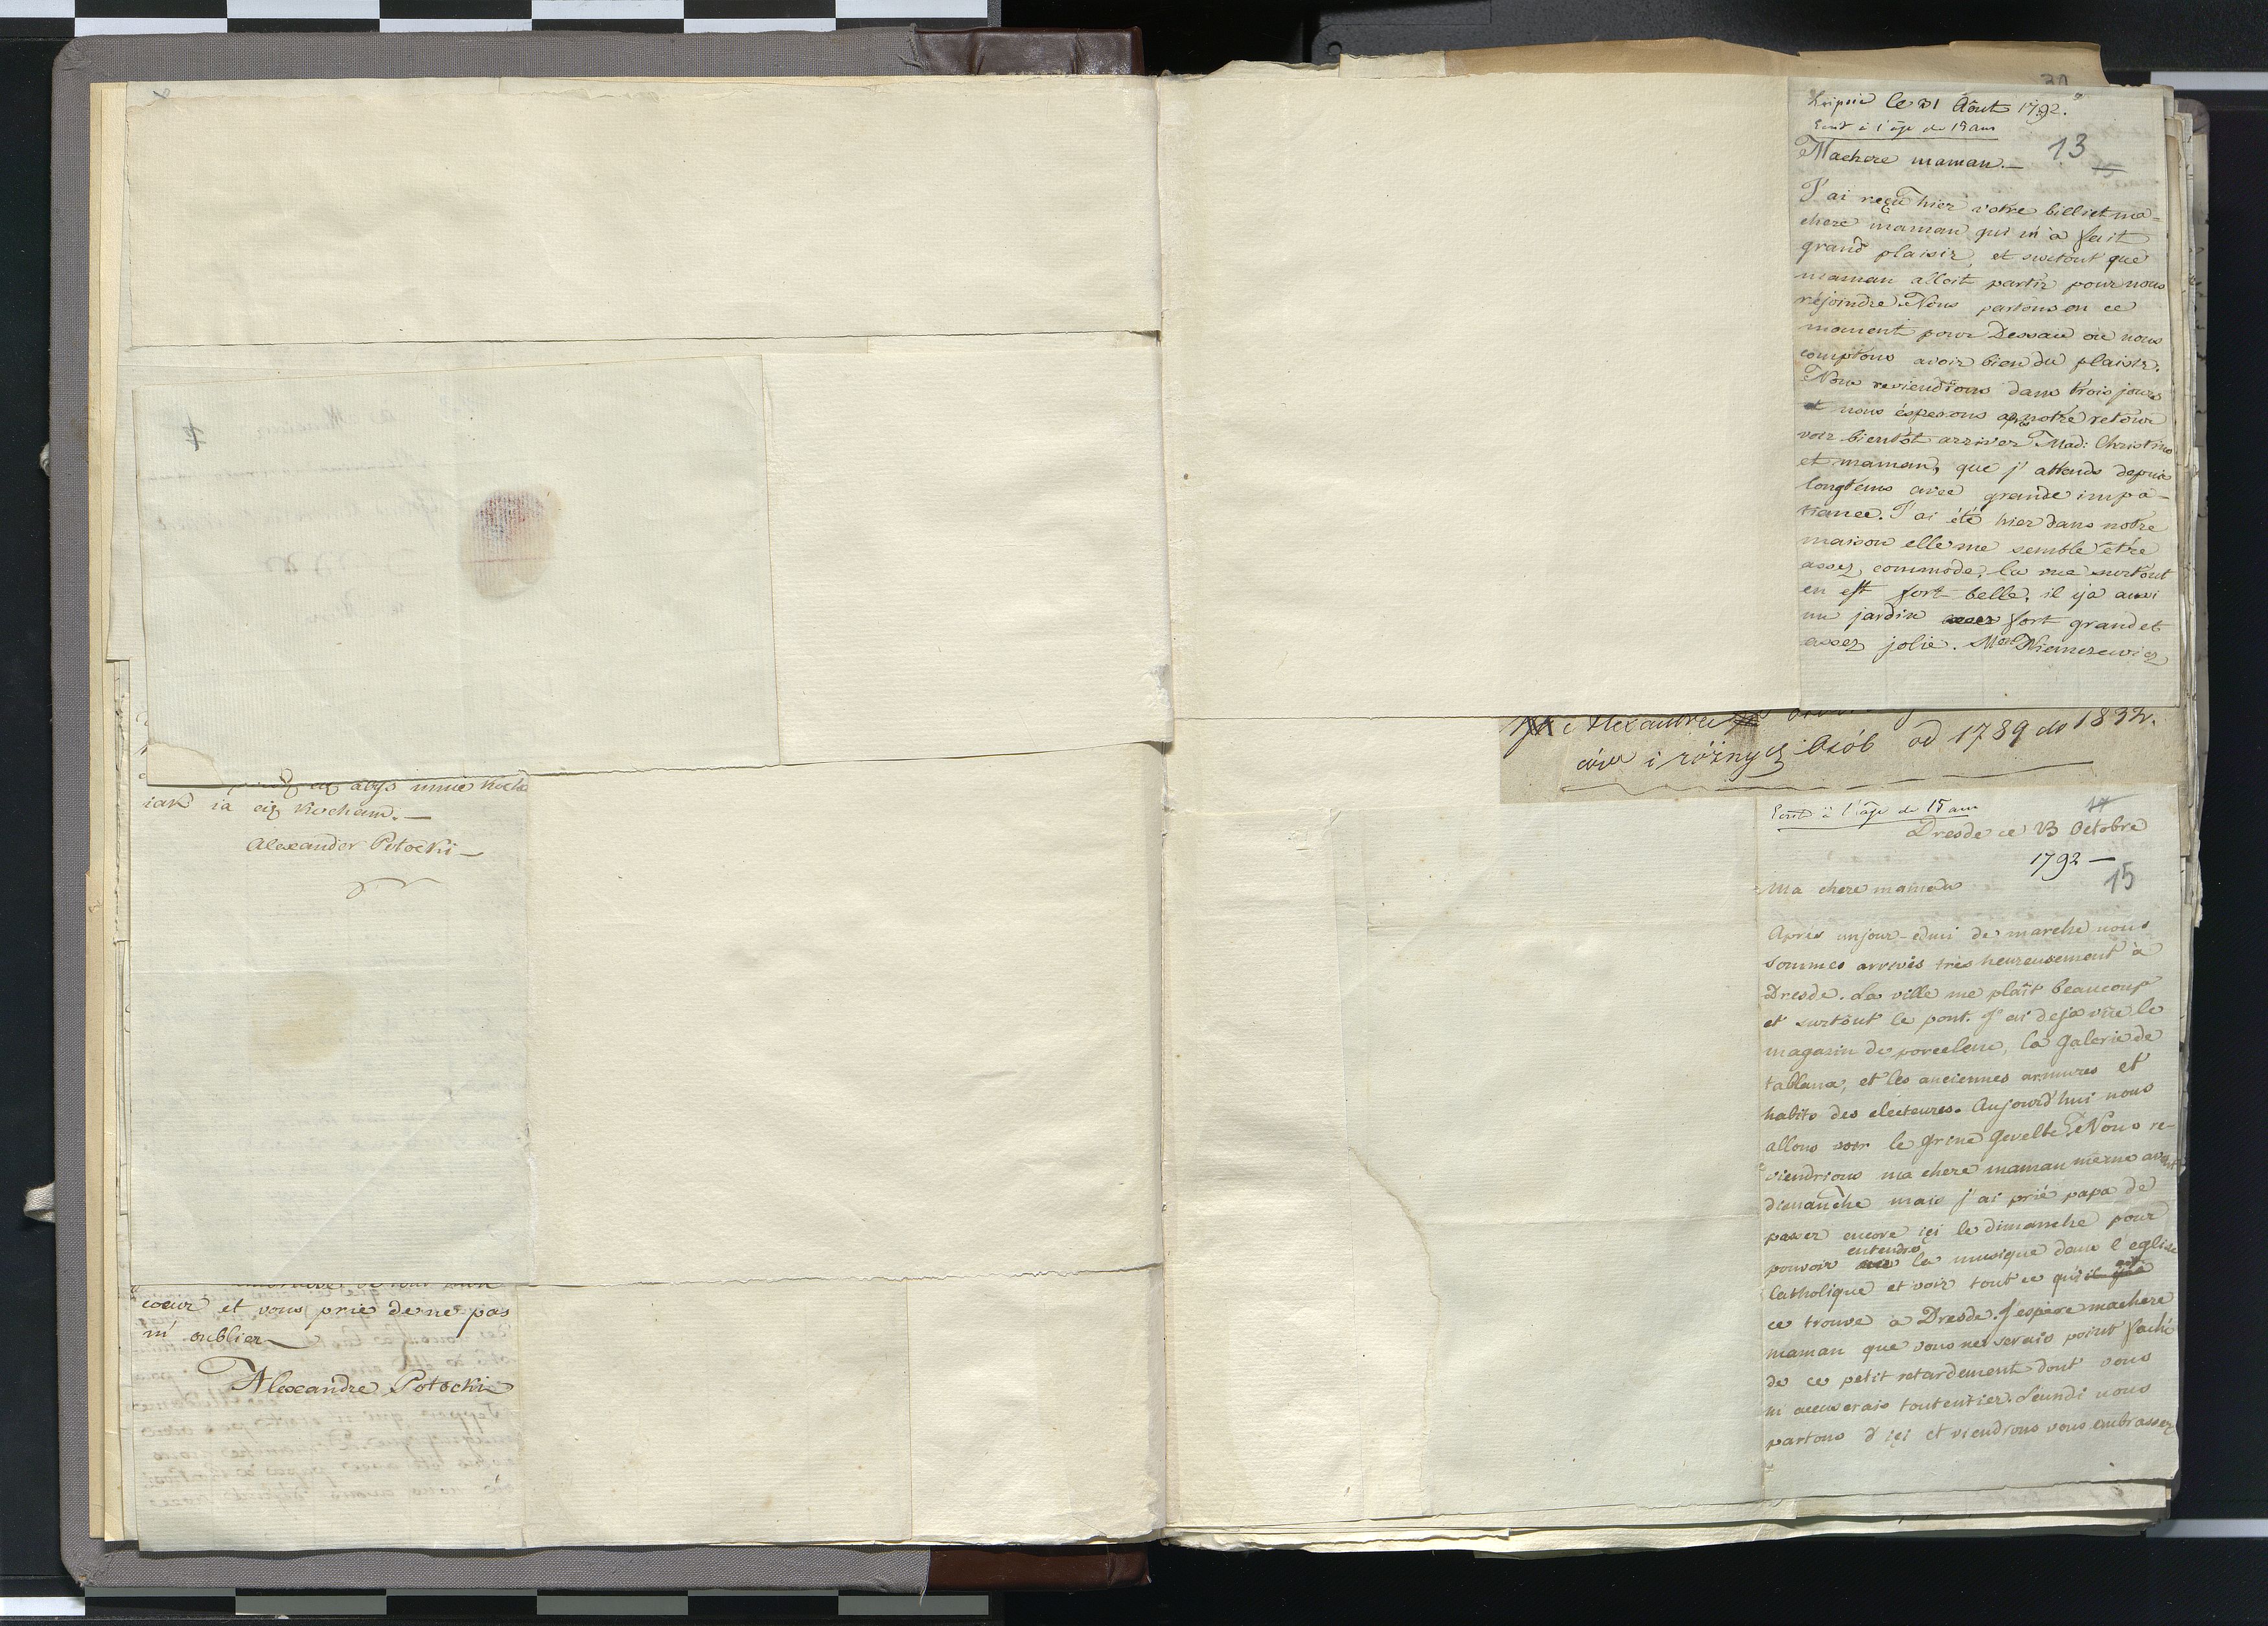 iak ia cię kocham.—
Alexander Potocki—
coeur et vous prie de ne pas
m'oublier
Alexandre Potocki
Leipsic le 21 Août 1792.
Ecrit à l'âge de 15 ans
13
15
Machere maman.—
J'ai reçû hier votre billiet ma=
chere maman qui m'a fait
grand plaisir, et surtout que
maman alloit partir pour nous
réjoindre. Nous partons en ce
moment pour Dessau où nous
comptons avoir bien du plaisir.
Nous reviendrons dans trois jours
et nous ésperons après notre retour
voir bientôt arriver Mad: Christine
et maman, que j'attends depuis
longtems avec grande impa-
tience. J'ai été hier dans notre
maison elle me semble être
assez commode, la vue surtout
en est fort belle, il ÿa aussi
un jardin fort grand et
assez jolie. Niemcewicz
i różnych osób od 1789 do 1832.
Ecrit à l'âge de 15 ans
Dresde ce 23 Octobre
1792—
15
Ma chere maman
Après un jour-edmi de marche nous
sommes arrivés très heureusement à
Dresde. La ville me plaît beaucoup
et surtout le pont. J'ai deja vûe le
magasin de porcelene, la Galerie de
tableaux, et les anciennes armures et
habits des electeures. Aujourd'hui nous
allons voir le Grine Gevelbe. Nous re-
viendrions ma chere maman meme avant
dimanche mais j'ai prié papa de
passer encore içi le dimanche pour
pouvoir entendre la musique dans l'eglise
Catholique et voir tout ce qui
ce trouve à Dresde. J'espère machere
maman que vous ne serais point fachée
de ce petit retardement dont vous
m'accuserais toutentier. Leundi nous
partons d'içi et viendrons vous embrasser